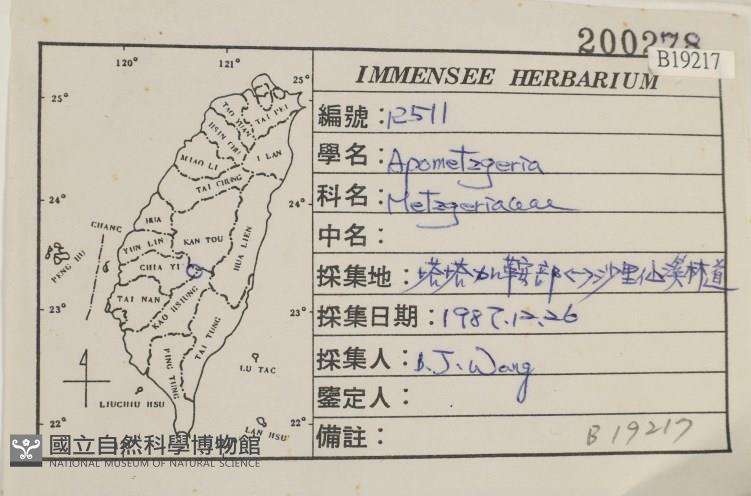 200278
B19217
IMMENSEE HERBARIUM
編號：12511
學名：Apometzgeria
科名：Metzgeriaceae
中名：
採集地：塔塔加鞍部<->沙里仙溪林道
採集日期：1987.12.26
採集人：B.J.Wang
鑒定人：
備註：
B19217
120° 121°
25° 25°
TAO YUAN
TAI PEI
HSIN CHU
I LAN
MIAO LI
TAI CHUNG
24° 24°
CHANG HUA
HUA LIEN
NAN TOU
YUN LIN
PENG HU
CHIA YI
TAI NAN
23° 23°
KAO HSIUNG
TAI TUNG
PING TUNG
LU TAO
LIUCHIU HSU
22° 22°
LAN HSU
國立自然科學博物館
NATIONAL MUSEUM OF NATURAL SCIENCE